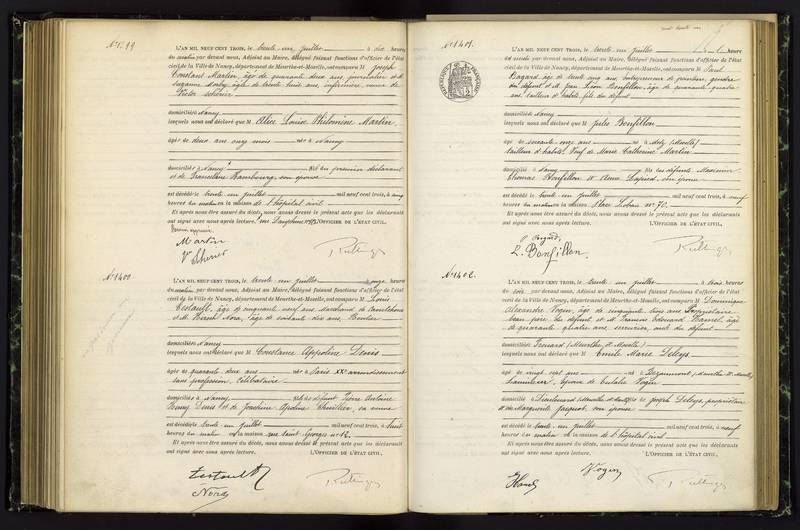 L'AN MIL NEUF CENT TROIS, le trente un juillet à dix heures
civil de la Ville de Nancy, département de Meurthe-et-Moselle, ont comparu M Joseph
Constant Martin, âgé de quarante deux ans journalier et d
Suzanne âgée de trente huit ans, infirmière, veuve de
Victor
domiciliés à Nancy
lesquels nous ont déclaré que M Alice Louise Philomène Martin
âgée de deux ans onze mois née à Nancy
domiciliée à Nancy fille du premier déclarant
et de Rambourg, son épouse
est décédée le trente un juillet mil neuf cent trois, à cinq
heures du matin en la maison de l'hôpital civil
Et après nous être assuré du décès, nous avons dressé le présent acte que les déclarants
ont signé avec nous après lecture. L'OFFICIER DE L'ÉTAT CIVIL,
Martin
Nº 1400
L'AN MIL NEUF CENT TROIS, le trente un juillet à onze heures
du matin par devant nous, Adjoint au Maire, délégué faisant fonctions d'officier de l'état
civil de la Ville de Nancy, département de Meurthe-et-Moselle, ont comparu M Louis
âgé de cinquante neuf ans, Marchand de
et M. âgé de soixante dix ans, Rentier
domiciliés à Nancy
lesquels nous ont déclaré que M Constance Appoline Denis
âgée de quarante deux ans née à Paris XXe arrondissement
sans profession, Célibataire
domiciliée à Nancy fille de défunt Pierre Antoine
Denis et de Joséphine Apoline Thuillier, sa veuve
est décédée le trente un juillet mil neuf cent trois, à huit
heures du matin en la maison rue Saint Georges nº 12
Et après nous être assuré du décès, nous avons dressé le présent acte que les déclarants
ont signé avec nous après lecture. L'OFFICIER DE L'ÉTAT CIVIL,
Nº 1401
L'AN MIL NEUF CENT TROIS, le trente un juillet à heure
par devant nous, Adjoint au Maire, délégué faisant fonctions d'officier de l'état
civil de la Ville de Nancy, département de Meurthe-et-Moselle, ont comparu M Paul
Bagard âgé de trente cinq ans, entrepreneur de peinture, gendre
du défunt et M. Jean Léon Bonfillon, âgé de quarante quatre
ans, tailleur d'habits, fils du défunt
domiciliés à Nancy
lesquels nous ont déclaré que M Jules Bonfillon
âgé de soixante onze ans né à Metz (Moselle)
tailleur d'habits, Veuf de Marie Catherine Martin
domicilié à Nancy fils des défunts
Thomas Bonfillon et Anne son épouse
est décédé le trente un juillet mil neuf cent trois, à neuf
heures du matin en la maison Place Lobau nº 70
Et après nous être assuré du décès, nous avons dressé le présent acte que les déclarants
ont signé avec nous après lecture. L'OFFICIER DE L'ÉTAT CIVIL,
Bagard
L. Bonfillon
Nº 1402
L'AN MIL NEUF CENT TROIS, le trente un juillet à trois heures
du soir par devant nous, Adjoint au Maire, délégué faisant fonctions d'officier de l'état
civil de la Ville de Nancy, département de Meurthe-et-Moselle, ont comparu M Dominique
Alexandre Vogin, âgé de cinquante trois ans Propriétaire
beau père du défunt et M. Edouard âgé
de quarante quatre ans, serrurier, du défunt
domiciliés à Frouard (Meurthe et Moselle)
lesquels nous ont déclaré que M Emile Marie Deleys
âgé de vingt sept ans né à Bezaumont (Meurthe et Moselle)
époux de Eulalie Vogin
domicilié à Dieulouard (Meurthe et Moselle) fils de Joseph Deleys, propriétaire
et de Marguerite Jacquot, son épouse
est décédé le trente un juillet mil neuf cent trois, à neuf
heures du matin en la maison de l'hôpital civil
Et après nous être assuré du décès, nous avons dressé le présent acte que les déclarants
ont signé avec nous après lecture. L'OFFICIER DE L'ÉTAT CIVIL,
Vogin